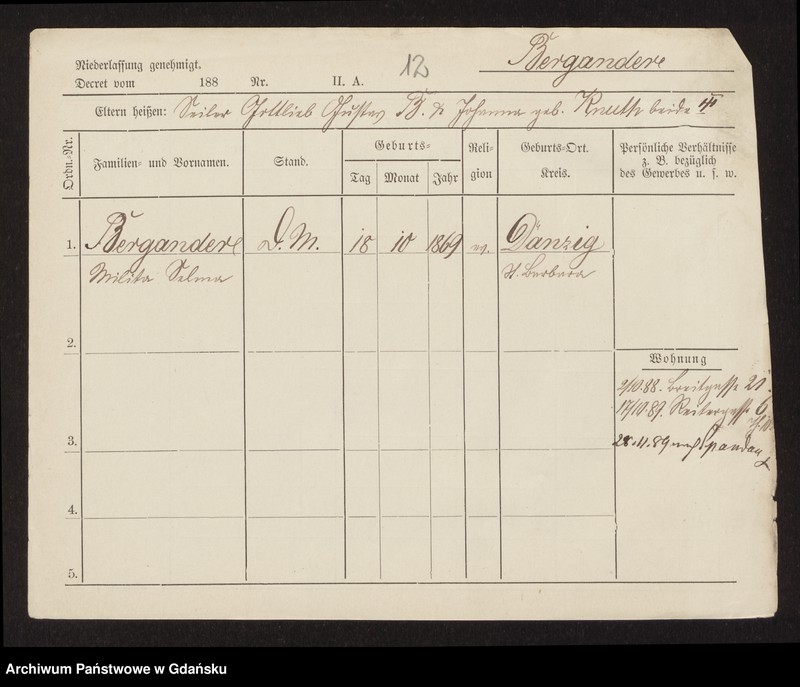 Niederlassung genehmigt.
Decret vom 188 Nr. II. A.
12
Bergandere
Eltern heißen: Seiler Gottlieb Gustav B. & Johanna geb. Knuth beide
Ordn.-Nr.
Familien- und Vornamen.
Stand.
Geburts-
Tag
Monat
Jahr
Reli-
gion
Geburts-Ort.
Kreis.
Persönliche Verhältnisse
z. B. bezüglich
des Gewerbes u. s. w.
1. Bergandere D. M. 18 10 1869 ev. Danzig
Selma St. Barbara
2.
Wohnung
2/10.88. Breitgasse 21.
17/10.89. Reitergasse 6
3.
28.11.89 nach Spandau
4.
5.
Archiwum Państwowe w Gdańsku